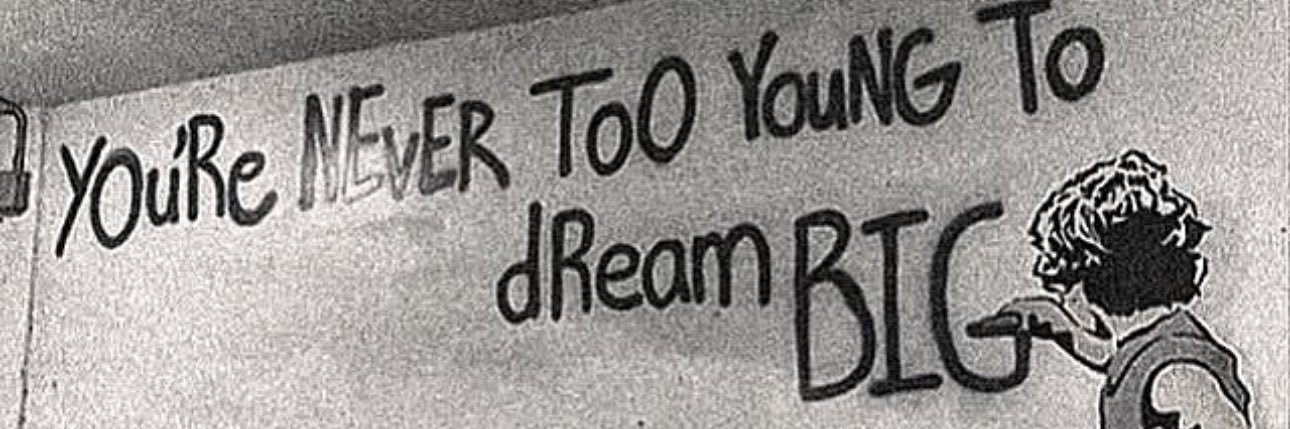 YOu'Re NEvER ToO YouNG To
dReam BIG